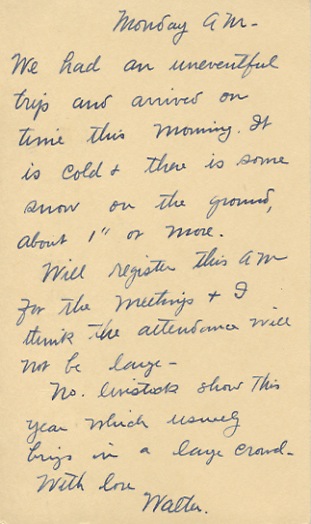 Monday AM-
We had an uneventful
trip and arrived on
time this morning. It
is cold + there is some
snow on the ground,
about 1" or more.
Will register this AM
for the meetings + I
think the attendance will
not be large-
No. livestock show this
year which usually
brigs in a large crowd-
With love
Walter.